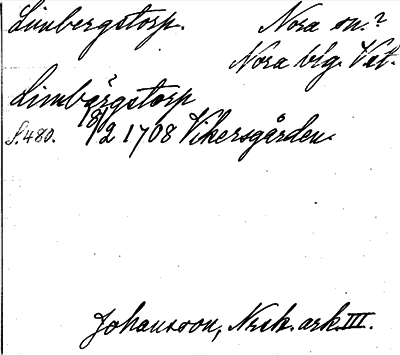 Limbergstorp. Nora sn.?
Nora bg. Vst.
Limbärgstorp
S. 480. 18/2 1708 Vikersgården.
Johansson, Nrsk. ark. III.